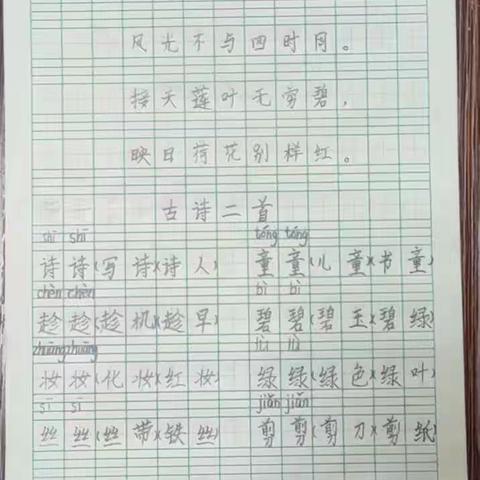 风光不与四时同。
接天莲叶无穷碧，
映日荷花别样红。
古诗二首
shī shī tóng tóng
诗诗(写诗)(诗人) 童童(儿童)(书童)
chèn chèn bì bì
趁趁(趁机)(趁早) 碧碧(碧玉)(碧绿)
zhuāng zhuāng lǜ lǜ
妆妆(化妆)(红妆) 绿绿(绿色)(绿叶)
sī sī jiǎn jiǎn
丝丝(丝带)(铁丝) 剪剪(剪刀)(剪纸)